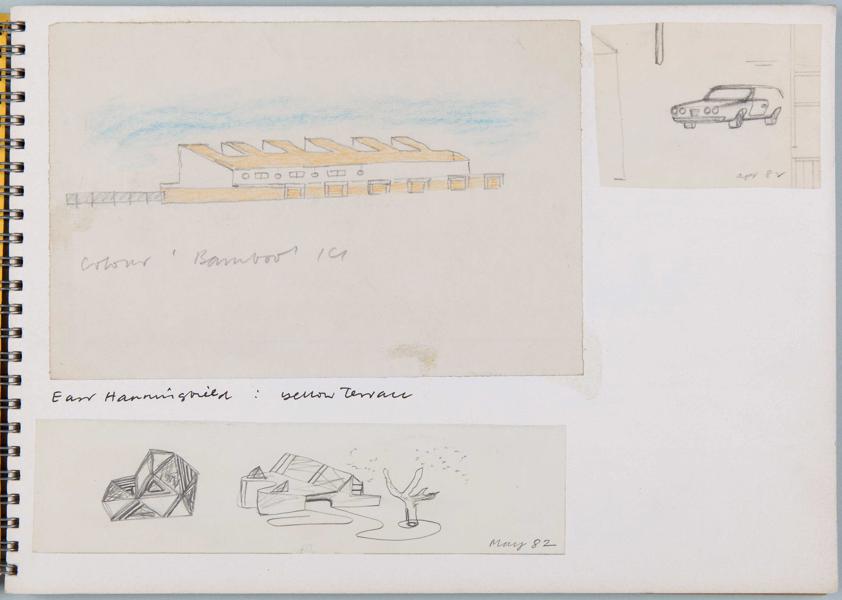 apr 82
Colour 'Bamboo' ICI
East Hanningfield : yellow Terrace
May 82